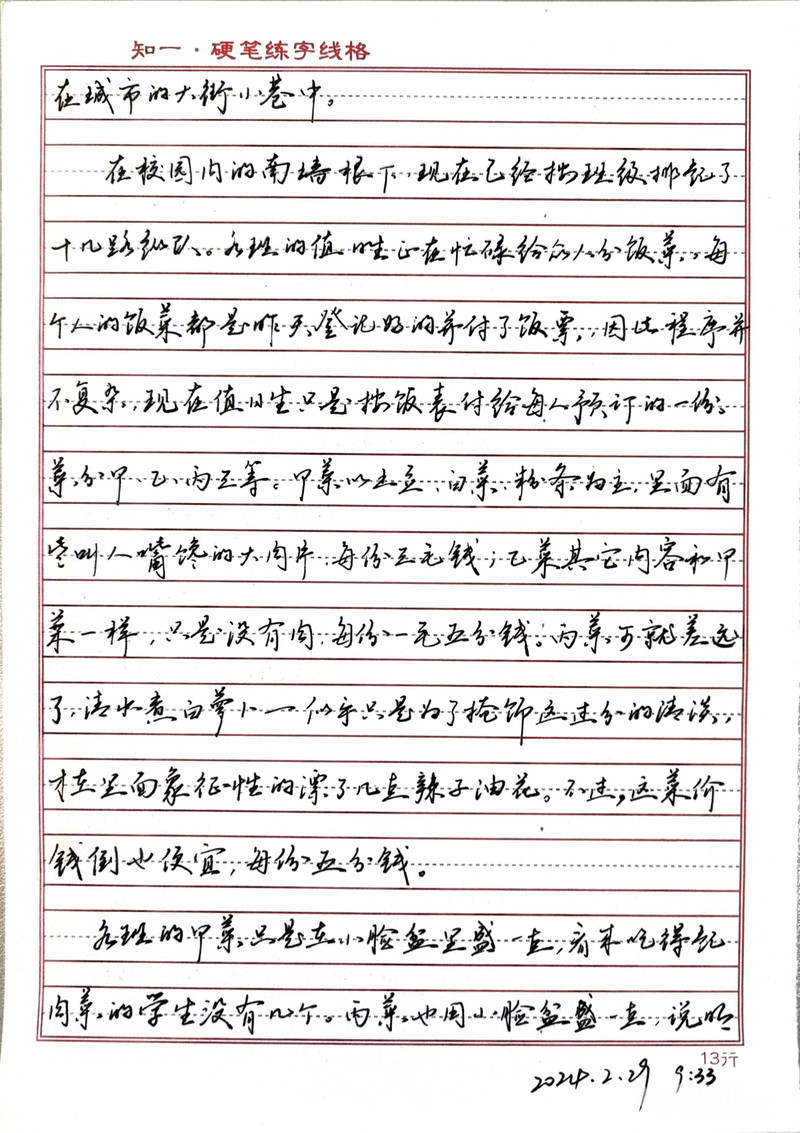 知一·硬笔练字线格
在城市的大街小巷中。
在校园内的南墙根下,现在已经按班级排起了
十几路纵队。各班的值日生正在忙碌给众人分饭菜。每
个人的饭菜都是昨天登记好的并付了饭票,因此程序并
不复杂,现在值日生只是按饭表付给每人预订的一份。
菜分甲、乙、丙三等。甲菜以土豆、白菜、粉条为主,里面有
些叫人嘴馋的大肉片,每份三毛钱;乙菜其它内容和甲
菜一样,只是没有肉,每份一毛五分钱。丙菜可就差远
了,清水煮白萝卜一似乎只是为了掩饰这过分的清淡,
才在里面象征性的漂了几点辣子油花。不过,这菜价
钱倒也便宜,每份五分钱。
各班的甲菜只是在小脸盆里盛一点,看来吃得起
肉菜的学生没有几个。丙菜也用小脸盆盛一点,说明
13行
2024.2.29 9:33